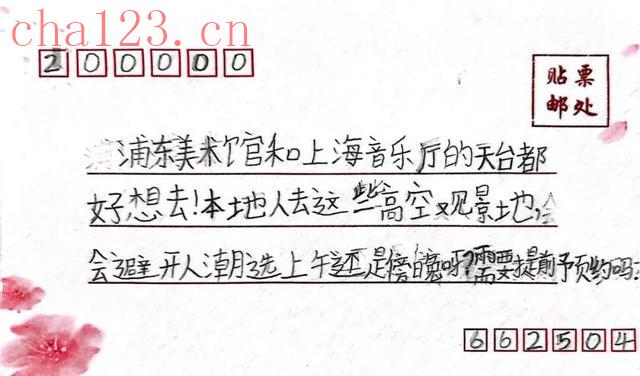 cha123.cn
200000
贴票
邮处
浦东美术馆和上海音乐厅的天台都
好想去!本地人去这些高空观景地,
会避开人潮选上午还是傍晚呀?需要提前预约吗?
662504